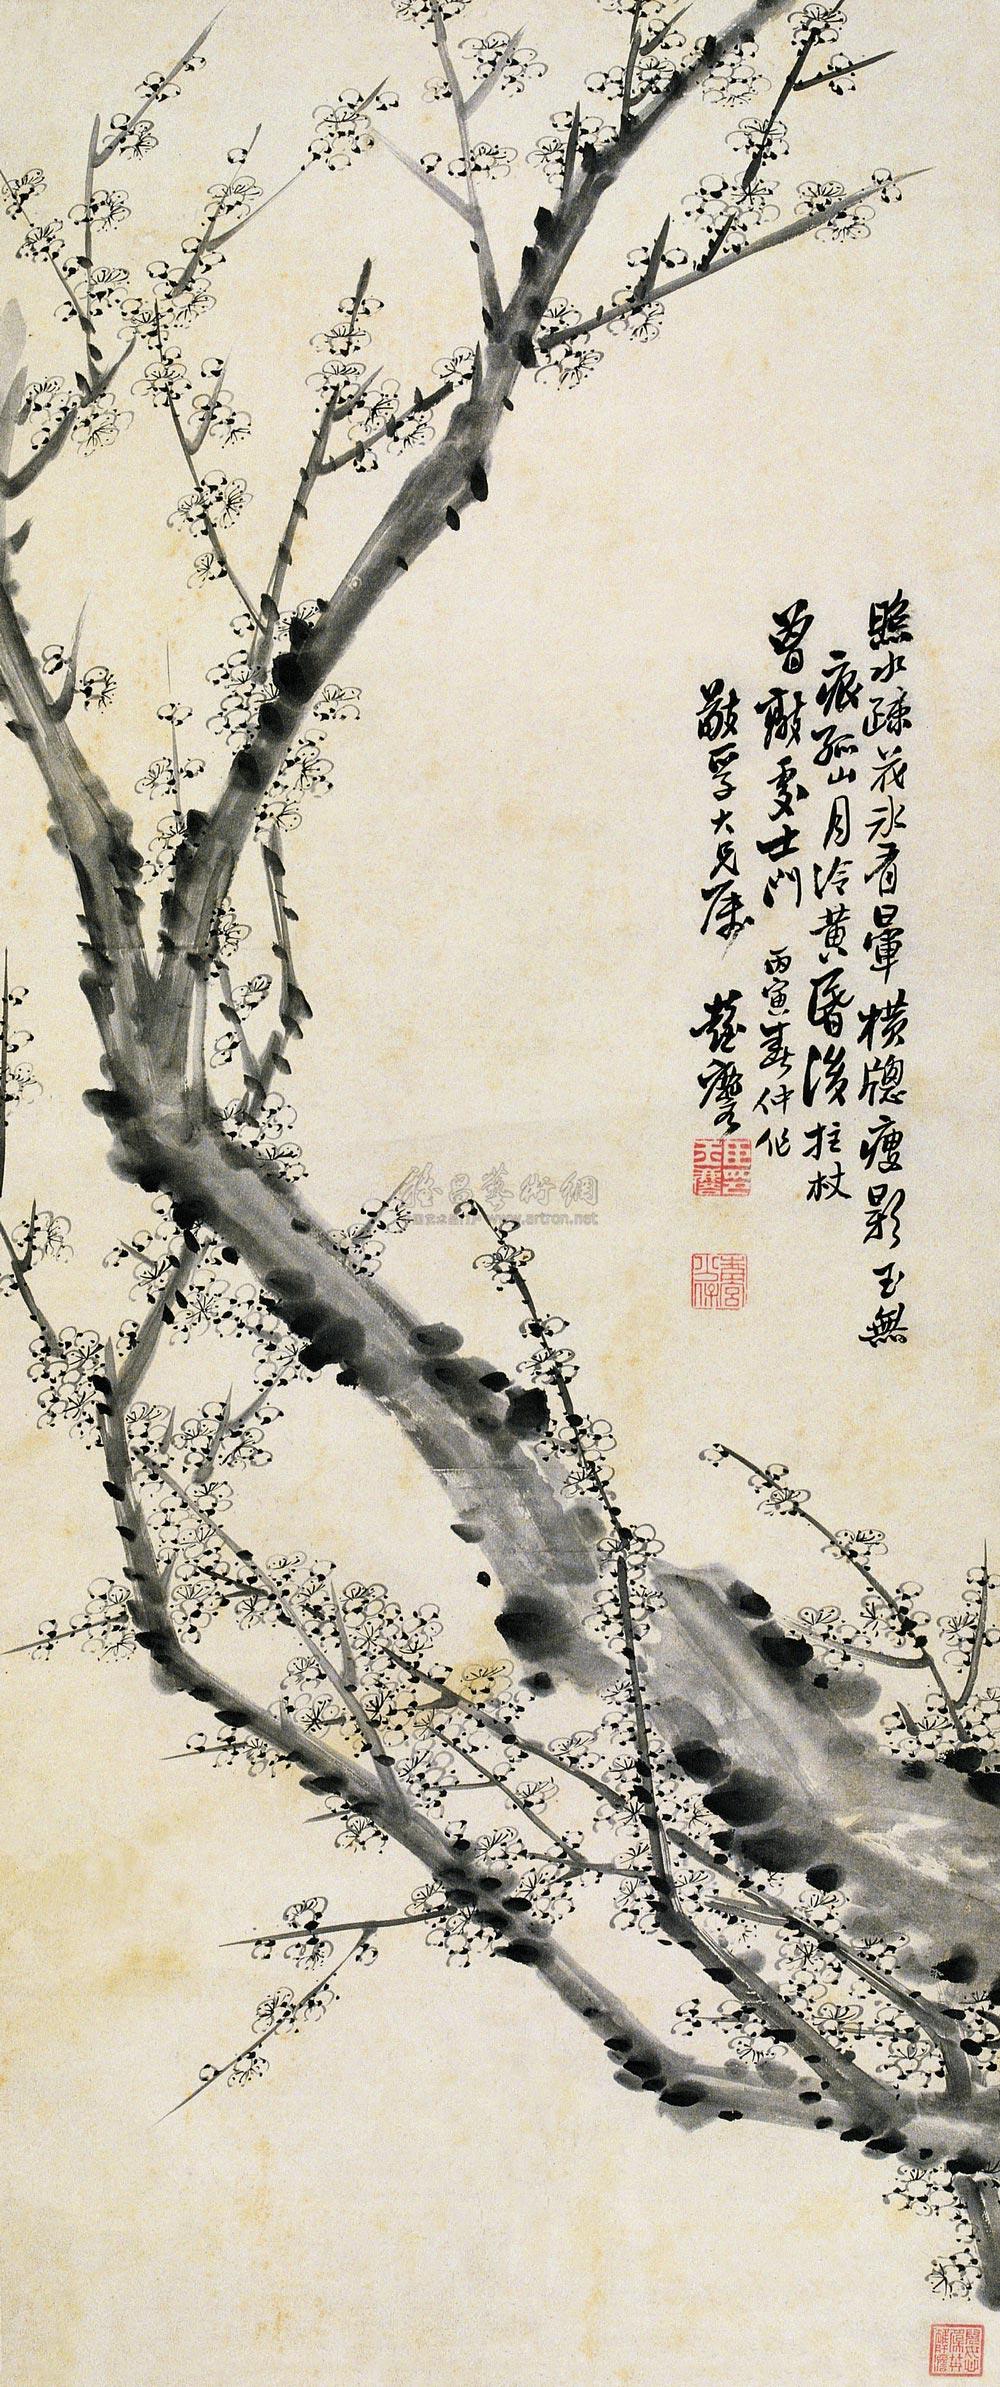 照水疎花冰有暈橫牕瘦影玉無
痕孤山月冷黃昏後拄杖
曾敲處士門 丙寅春仲作
敬孚大兄屬
雅昌藝術網
www.artron.net